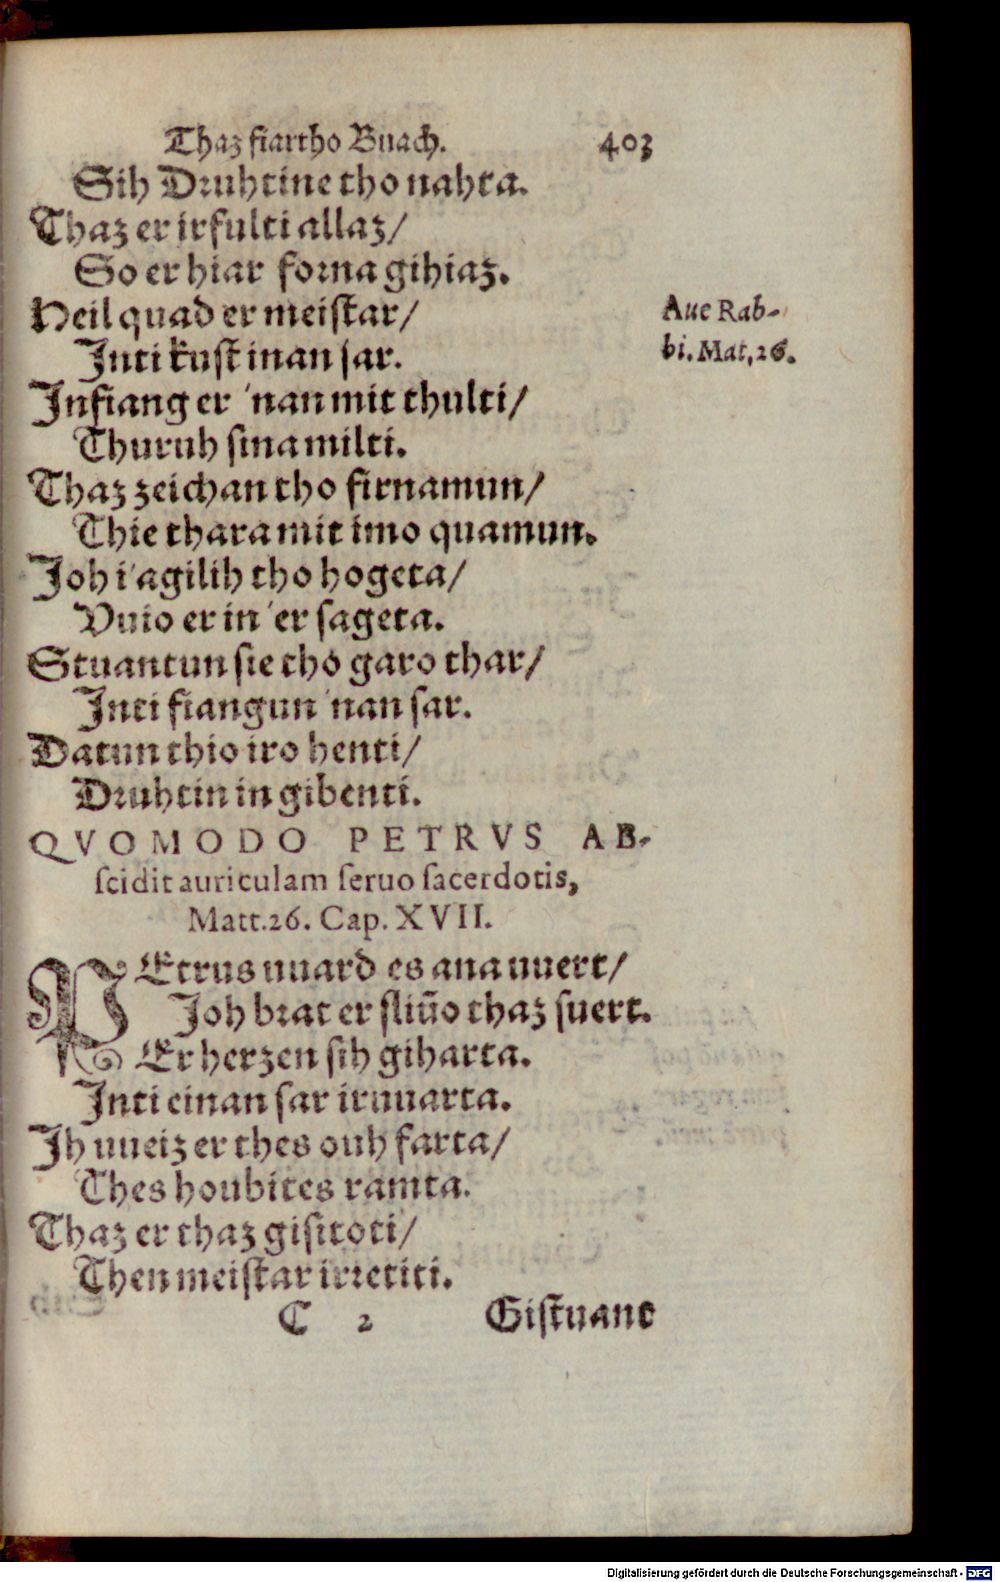 Thaz fiartho Buach. 403
Sih Druhtine tho nahta.
Thaz er irfulti allaz/
So er hiar forna gihiaz.
Heil quad er meistar/
Inti kust inan sar.
Infiang er 'nan mit thulti/
Thuruh sina milti.
Thaz zeichan tho firnamun/
Thie thara mit imo quamun.
Joh i'agilih tho hogeta/
Vuio er in 'er sageta.
Stuantun sie tho garo thar/
Inti fiangun 'nan sar.
Datun thio iro henti/
Druhtin in gibenti.
Aue Rab-
bi. Mat. 26.
QVOMODO PETRVS AB-
scidit auriculam seruo sacerdotis,
Matt. 26. Cap. XVII.
PEtrus uuard es ana uuert/
Joh brat er sliũo thaz suert.
Er herzen sih giharta.
Inti einan sar iruuarta.
Ih uueiz er thes ouh farta/
Thes houbites ramta.
Thaz er thaz gisitoti/
Then meistar irretiti.
C 2 Gistuant
Digitalisierung gefördert durch die Deutsche Forschungsgemeinschaft - DFG